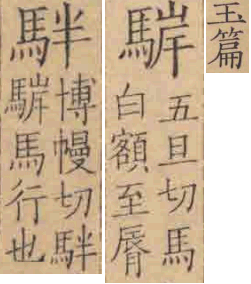 玉篇
䮗
五旦切馬
白額至脣
䭴
博幔切䭴
䮗馬行也